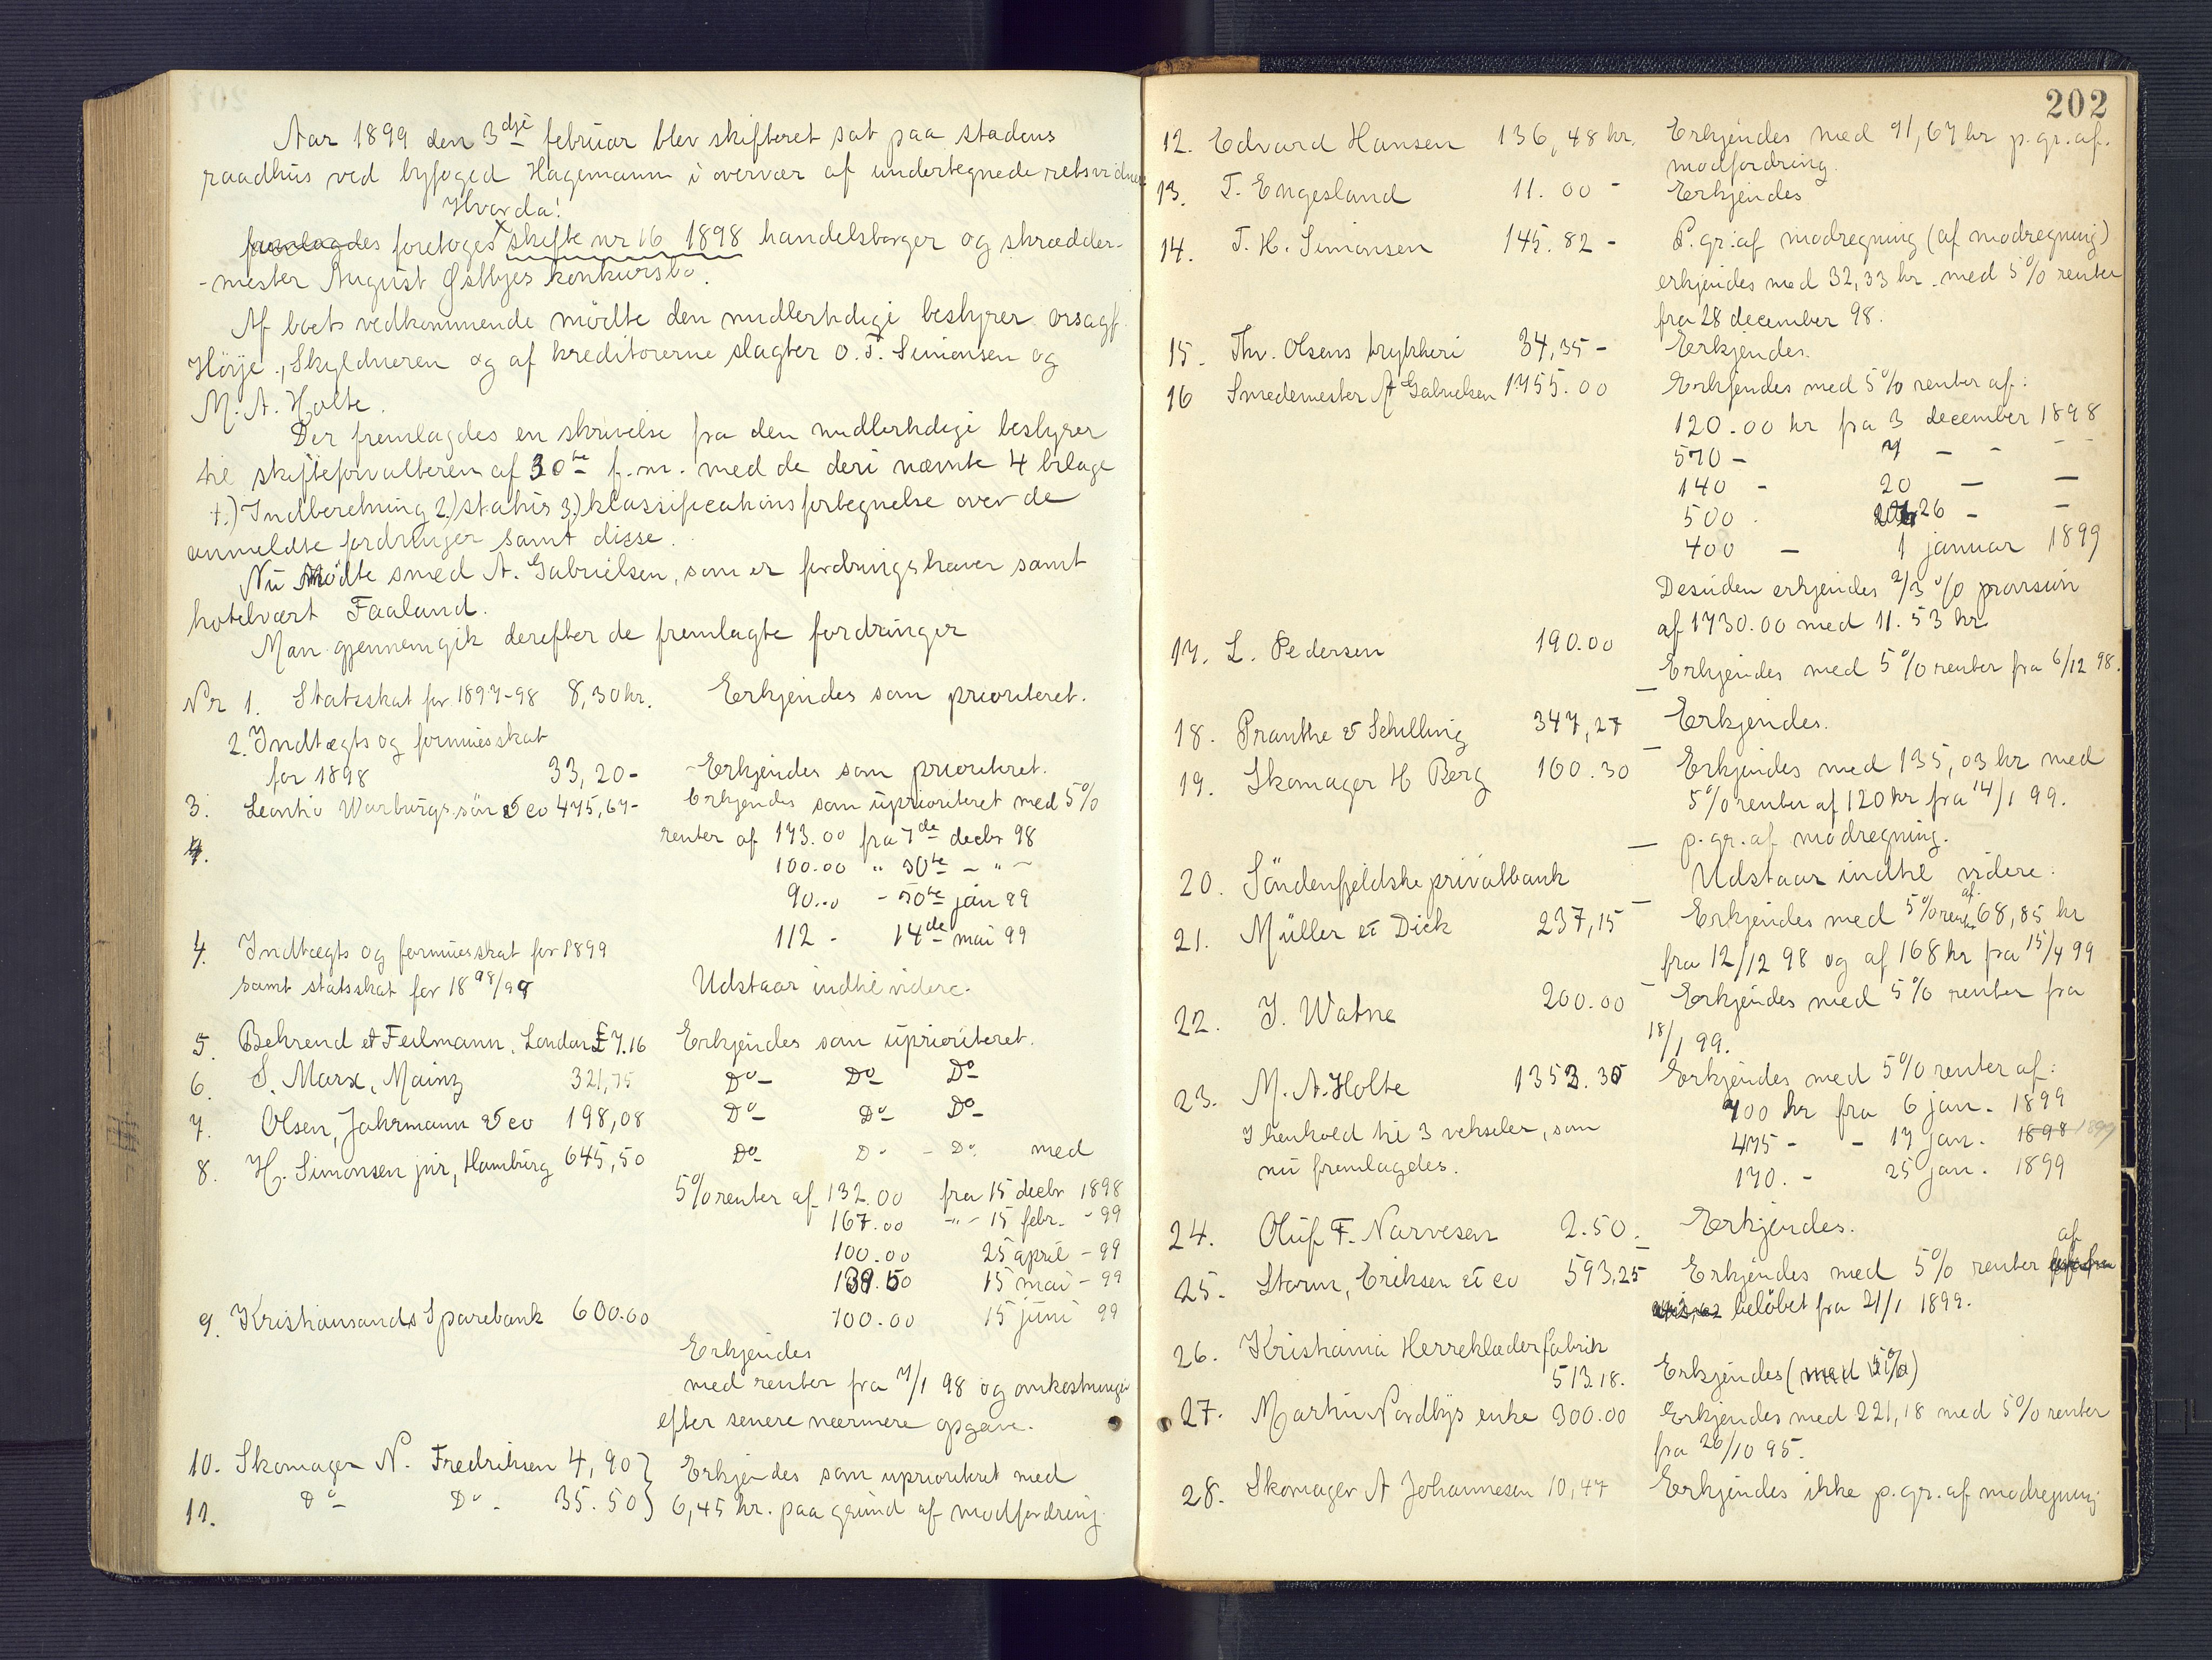 Aar 1899 den 3dje februar blev skifteret sat paa stadens
raadhus ved byfoged Hagemann i overvær af undertegnede retsvidner
Hvorda:
fremlagdes foretoges skifte nr 16 1898 handelsborger og skrædder-
-mester August Østbyes konkursbo.
Af boets vedkommende mödte den midlertidige bestyrer orsagf.
Höije, Skyldneren og af kreditorerne slagter O. T. Simonsen og
M. A. Holte.
Der fremlagdes en skrivelse fra den midlertidige bestyrer
til skifteforvalteren af 30te f.m. med de deri nævnte 4 bilage
1.) Indberetning 2.) status 3.) klassifications fortegnelse over de
anmeldte fordringer samt disse.
Nu mödte smed A. Gabrielsen, som er fordringshaver samt
hotelvært Faaland.
Man gjennemgik derefter de fremlagte fordringer
Nr 1. Statsskat for 1897-98 8,30 kr. Erkjendes som prioriteret.
2. Indtægts og formuesskat
for 1898 33,20- Erkjendes som prioriteret.
3. Leontio Warburgs sön & co 475,67- Erkjendes som uprioriteret med 5%
4. renter af 173.00 fra 7de decbr 98
100.00 " 30te - " -
90.00 - 30te jan 99
112 - 14de mai 99
4. Indtægts og formuesskat for 1899
samt statsskat for 1898/99 Udstaar indtil videre.
5. Behrend et Feilmann, London £ 7.16 Erkjendes som uprioriteret.
6. S. Marx, Mainz 321,75 Do Do Do
7. Olsen, Jahrmann & co 198,08 Do Do Do
8. H. Simonsen jnr, Hamburg 645,50 Do Do - Do med
5% renter af 132.00 fra 15 decbr 1898
167.00 -"- 15 febr. - 99
100.00 25 april - 99
139.50 15 mai - 99
9. Kristiansands Sparebank 600.00 100.00 15 juni 99
Erkjendes
med renter fra 7/1 98 og omkostninger
efter senere nærmere opgave.
10. Skomager N. Fredriksen 4,90 } Erkjendes som uprioriteret med
11. Do Do - 35.50 } 6,45 kr. paa grund af modfordring
202
12. Edvard Hansen 136,48 kr. Erkjendes med 91,67 kr p.gr.af.
modfordring.
13. T. Engesland 11.00 - Erkjendes
14. T. H. Simonsen 145.82 - P.gr.af modregning (af modregning)
erkjendes med 32,33 kr. med 5% renter
fra 28 december 98.
15. Thv. Olsens trykkeri 34,35 - Erkjendes.
16 Smedemester A Gabrielsen 1755.00 Erkjendes med 5% renter af:
120.00 kr fra 3 december 1898
570 - 7 - - - -
140 - 20 - -
500 . 26 - -
400 - 1 januar 1899
Desuden erkjendes 2/3 % provision
af 1730.00 med 11.53 kr
17. L. Pedersen 190.00 Erkjendes med 5% renter fra 6/12 98.
18. Pranthe & Schilling 347,27 - Erkjendes.
19. Skomager H Berg 160.30 - Erkjendes med 135,03 kr med
5% renter af 120 kr fra 14/1 99.
p.gr.af modregning.
20. Söndenfjeldske privatbank - Udstaar indtil videre.
21. Müller et Dick 237,15 - Erkjendes med 5% renter af 68,85 kr
fra 12/12 98 og af 168 kr fra 15/4 99
22. J. Watne 200.00 - Erkjendes med 5% renter fra
18/1 99.
23. M. A. Holte 1353.35 Erkjendes med 5% renter af:
700 kr fra 6 jan. 1899
I henhold til 3 veksler, som 475 - - 17 jan. 1898 1899
nu fremlagdes. 170. - 25 jan. 1899
24. Oluf F. Narvesen 2.50. Erkjendes.
25. Storm, Eriksen et co 593,25 - Erkjendes med 5% renter af
belöbet fra 21/1 1899.
26. Kristiania Herreklæderfabrik
513.18. Erkjendes (med 5%)
27. Martin Nordbys enke 300.00 Erkjendes med 221,18 med 5% renter
fra 26/10 95.
28. Skomager A Johannesen 10,47 Erkjendes ikke p.gr.af modregning